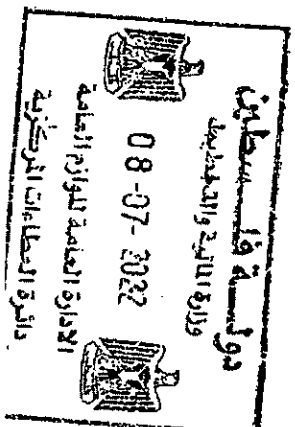 دولة فلسطين
وزارة المالية والتخطيط
08-07-2022
الإدارة العامة للوازم العامة
دائرة العطاءات المركزية